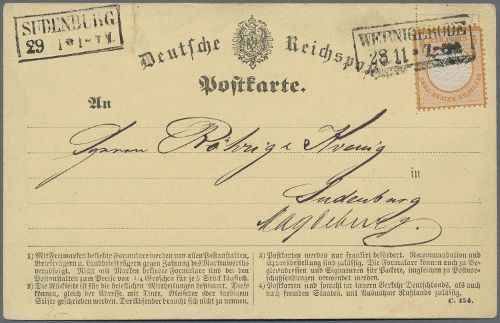 SUDENBURG
29 1 * 1-
WERNIGERODE
28 11 * 7-
Deutsche Reichspost
Postkarte.
An
Herren Röhrig & Koenig
in
Sudenburg
Magdeburg.
1) Mit Freimarken beklebte Formulare werden von allen Postanstalten,
Briefträgern u. Landbriefträgern gegen Zahlung des Markenwerths
verabfolgt. Nicht mit Marken beklebte Formulare sind bei den
Postanstalten zum Preise von ¼ Groschen für je 5 Stück käuflich.
2) Die Rückseite ist für die eigentlichen Mittheilungen bestimmt. Diese
können, gleich der Adresse, mit Tinte, Bleifeder oder farbigem
Stifte geschrieben werden. Der Absender braucht sich nicht zu nennen.
3) Postkarten werden nur frankirt befördert. Recommandation und
Expreßbestellung sind zulässig. Die Formulare können auch zu Be-
gleitadressen und Signaturen für Packete, ingleichen zu Postvor-
schußsendungen verwendet werden.
4) Postkarten sind sowohl im innern Verkehr Deutschlands, als auch
nach fremden Staaten, mit Ausnahme Rußlands zulässig.
C. 154.